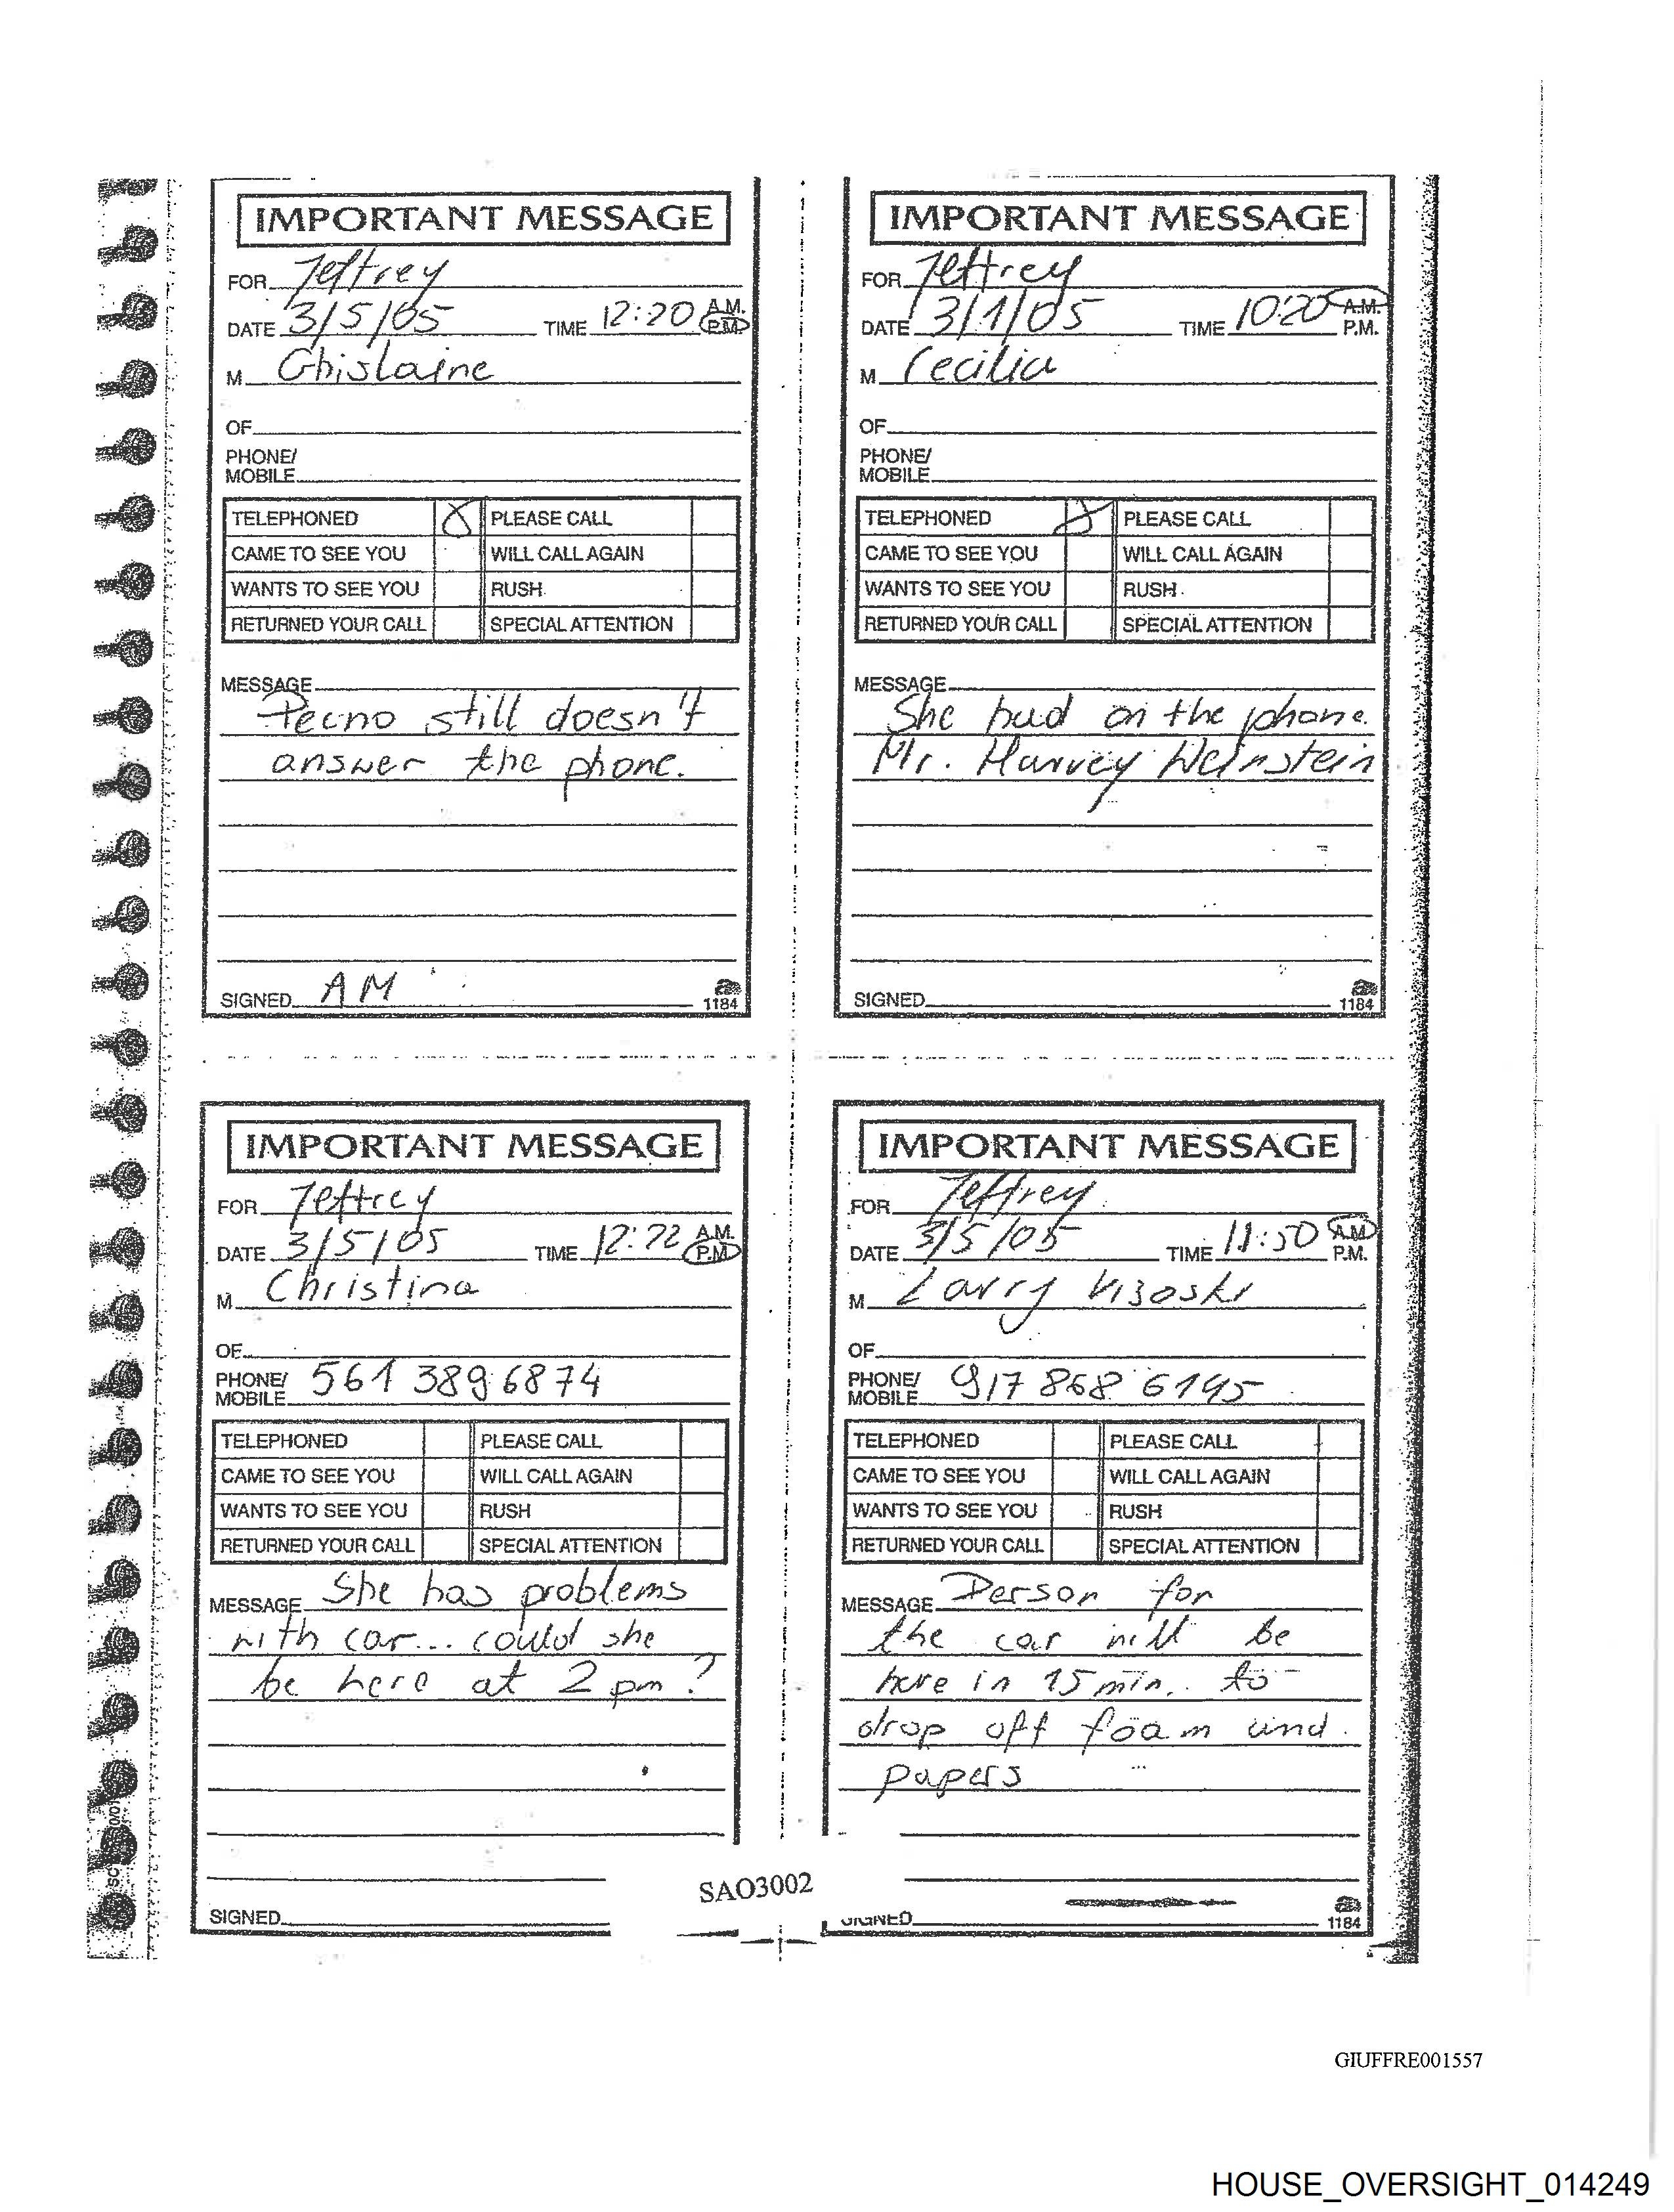 IMPORTANT MESSAGE
FOR Jeffrey
DATE 3/5/05 TIME 12:20 A.M. P.M.
M Ghislaine
OF
PHONE/
MOBILE
TELEPHONED X PLEASE CALL
CAME TO SEE YOU WILL CALL AGAIN
WANTS TO SEE YOU RUSH
RETURNED YOUR CALL SPECIAL ATTENTION
MESSAGE
still doesn't
answer the phone.
SIGNED AM 1184
IMPORTANT MESSAGE
FOR Jeffrey
DATE 3/1/05 TIME 10:20 A.M.
P.M.
M Cecilia
OF
PHONE/
MOBILE
TELEPHONED X PLEASE CALL
CAME TO SEE YOU WILL CALL AGAIN
WANTS TO SEE YOU RUSH
RETURNED YOUR CALL SPECIAL ATTENTION
MESSAGE
She had on the phone.
Mr. Harvey Weinstein
SIGNED 1184
IMPORTANT MESSAGE
FOR Jeffrey
DATE 3/5/05 TIME 12:22 A.M. P.M.
M Christina
OF
PHONE/
MOBILE 561 389 6874
TELEPHONED PLEASE CALL
CAME TO SEE YOU WILL CALL AGAIN
WANTS TO SEE YOU RUSH
RETURNED YOUR CALL SPECIAL ATTENTION
MESSAGE She has problems
with car... could she
be here at 2 pm?
SIGNED
IMPORTANT MESSAGE
FOR Jeffrey
DATE 3/5/05 TIME 11:50 A.M.
P.M.
M Larry Visoski
OF
PHONE/
MOBILE 917 868 6195
TELEPHONED PLEASE CALL
CAME TO SEE YOU WILL CALL AGAIN
WANTS TO SEE YOU RUSH
RETURNED YOUR CALL SPECIAL ATTENTION
MESSAGE Person for
the car will be
here in 15 min. to
drop off foam and
papers
SIGNED 1184
SAO3002
GIUFFRE001557
HOUSE_OVERSIGHT_014249